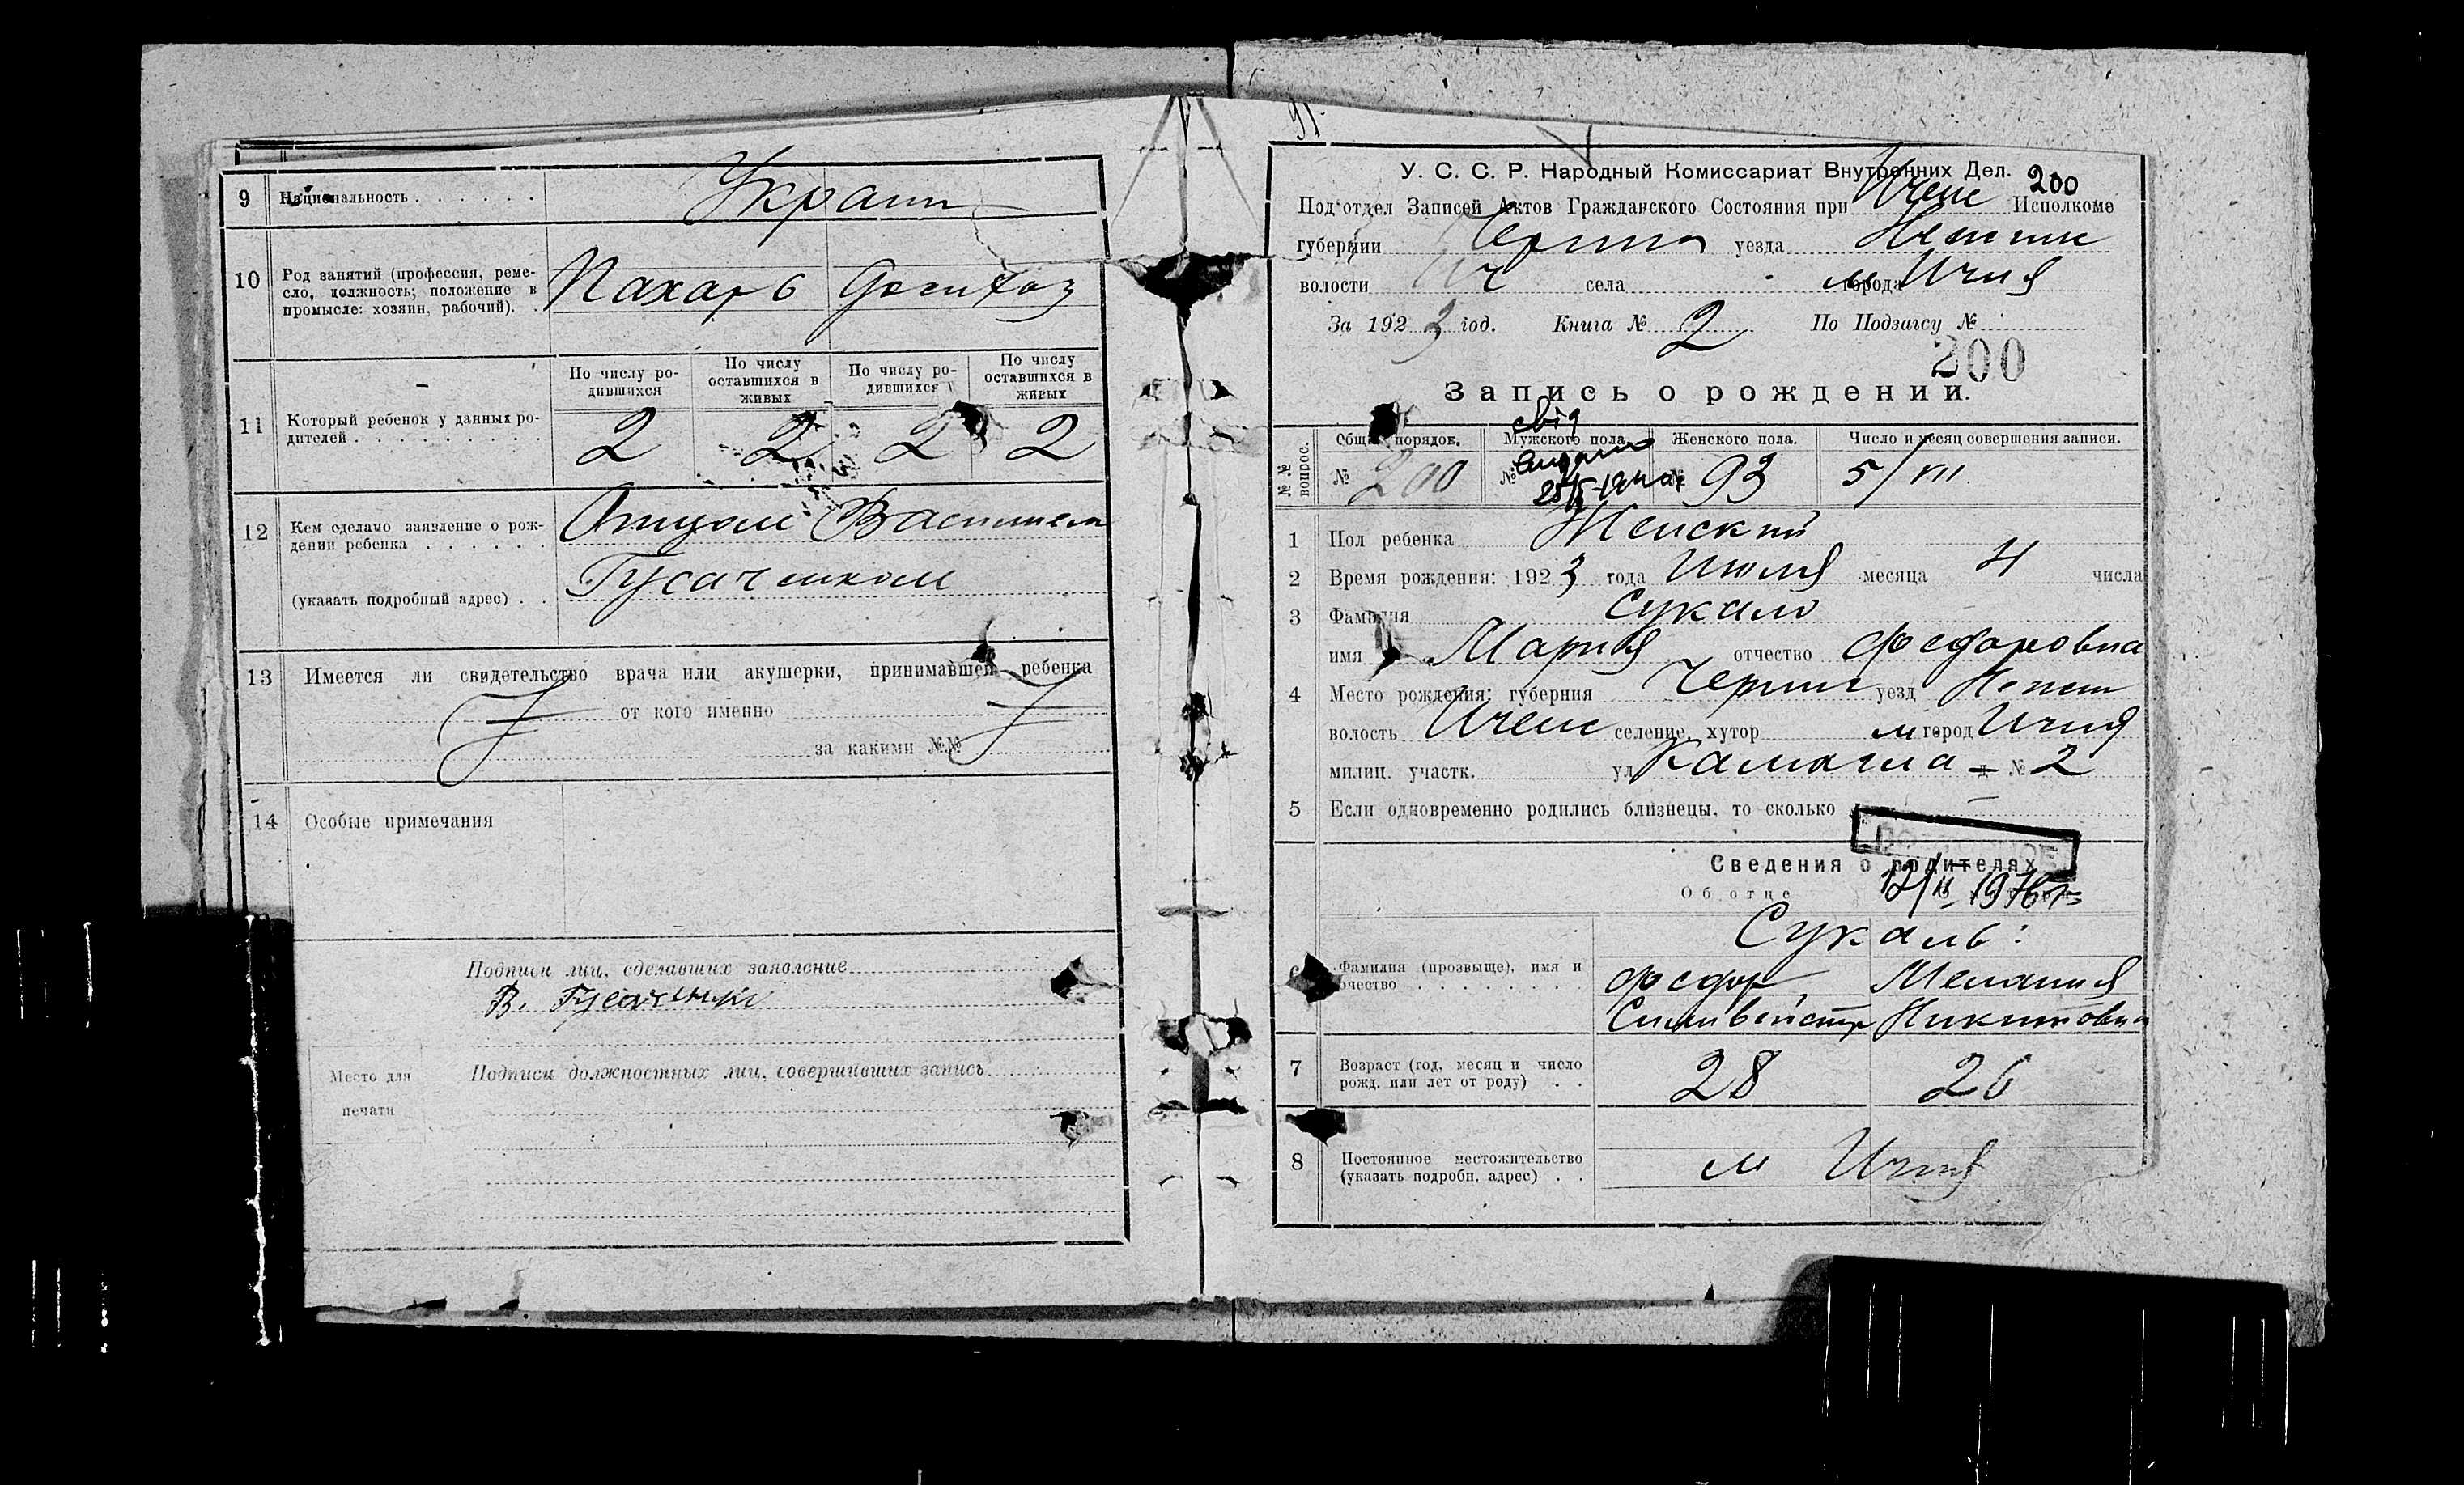 9 Национальность Украин
10 Род занятий (профессия, реме-
сло, должность; положение в
промысле: хозяин, рабочий).
Пахарь
11 Который ребенок у данных ро-
дителей
По числу ро-
дившихся
По числу
оставшихся в
живых
По числу ро-
дившихся
По числу
оставшихся в
живых
2 2 2 2
12 Кем сделано заявление о рож-
дении ребенка
(указать подробный адрес)
Отцом Василием
Гусаченком
13 Имеется ли свидетельство врача или акушерки, принимавшей ребенка
от кого именно
за какими №№
14 Особые примечания
Подписи лиц, сделавших заявление
В. Гусаченко
Место для
печати
Подписи должностных лиц, совершивших запись
У. С. С. Р. Народный Комиссариат Внутренних Дел. 200
Под'отдел Записей Актов Гражданского Состояния при Ичен Исполкоме
губернии Черниг уезда Нежин
волости Ич села м города Ичня
За 1923 год. Книга № 2 По Подзагсу №
200
Запись о рождении.
№№ вопрос.
Общ. порядок. Мужского пола. Женского пола. Число и месяц совершения записи.
№ 200 № № 93 5/VII
1 Пол ребенка Женский
2 Время рождения: 1923 года Июля месяца 4 числа
3 Фамилия Сукало
имя Мария отчество Федоровна
4 Место рождения: губерния Черниг уезд Нежин
волость Ичен селение, хутор м город Ичня
милиц. участк. ул. д. № 2
5 Если одновременно родились близнецы, то сколько —
Сведения о родителях
Об отце
Сукаль:
6 Фамилия (прозвище), имя и
отчество
Федор Мелания
Никитовна
7 Возраст (год, месяц и число
рожд. или лет от роду)
28 26
8 Постоянное местожительство
(указать подробн. адрес)
м Ичня